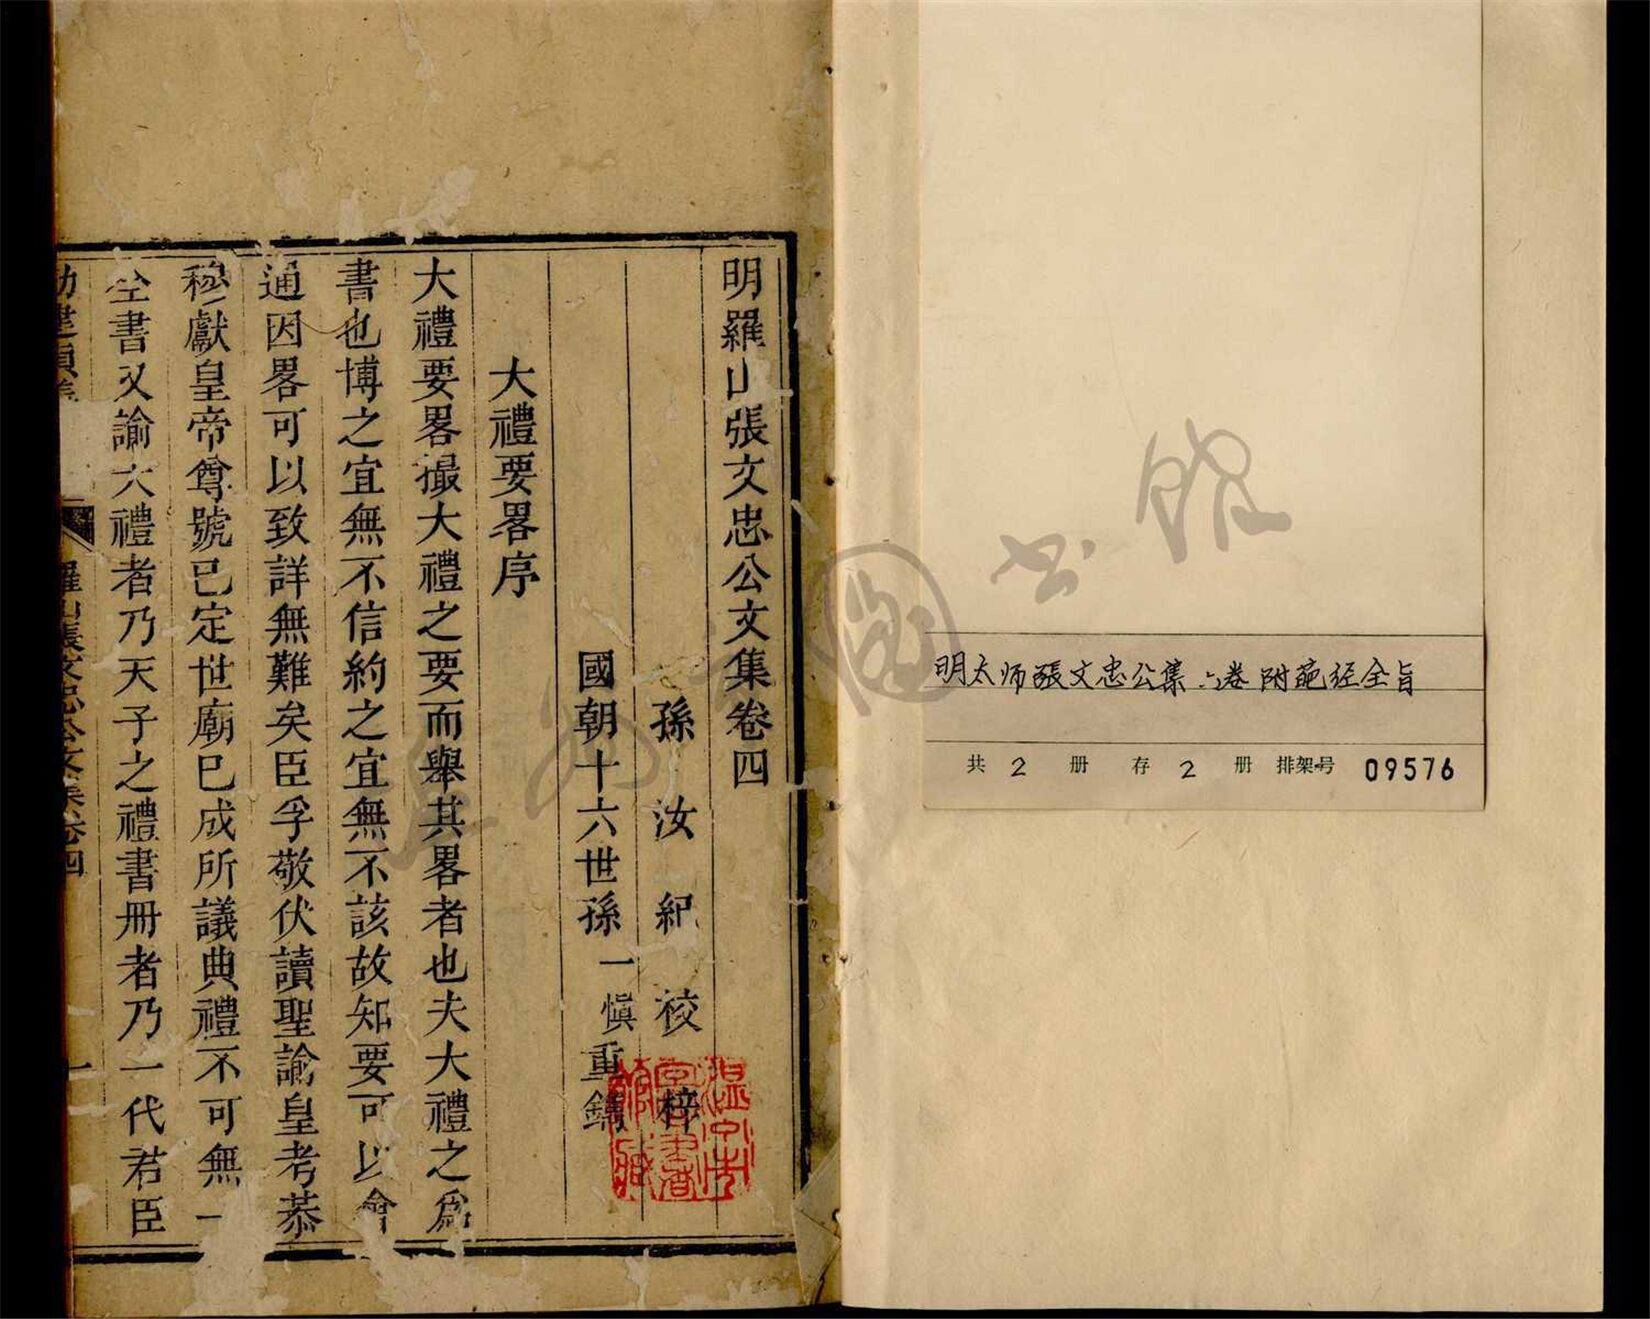 明太师張文忠公集 六卷 附葩经全旨
共 2 册 存 2 册 排架号 09576
明羅山張文忠公文集卷四
孫汝紀校梓
國朝十六世孫一愼重鐫
大禮要畧序
大禮要畧撮大禮之要而舉其畧者也夫大禮之爲
書也博之宜無不信約之宜無不該故知要可以會
通因畧可以致詳無難矣臣孚敬伏讀聖諭皇考恭
穆獻皇帝尊號已定世廟已成所議典禮不可無一
全書又諭大禮者乃天子之禮書冊者乃一代君臣
羅山張文忠公文集卷四
一
溫州市圖書館藏
溫州圖书館